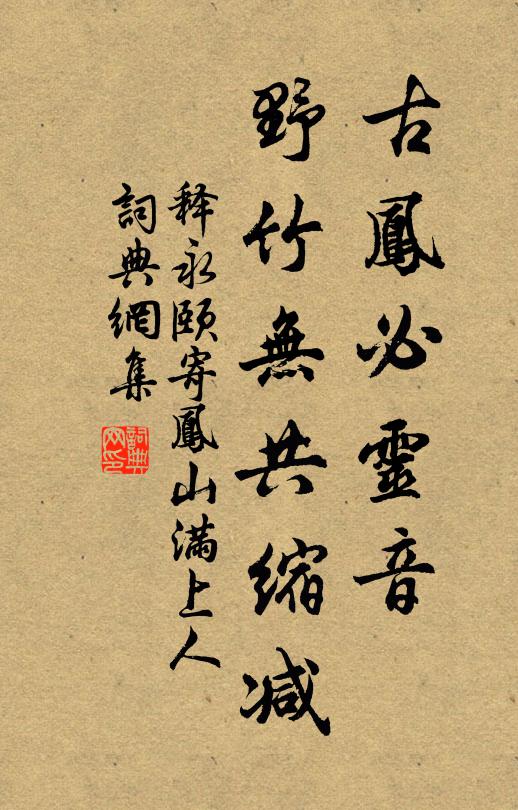 古鳳必靈音
野竹無共縮減
释永颐寄鳳山满上人
詞典網集
詞典网印